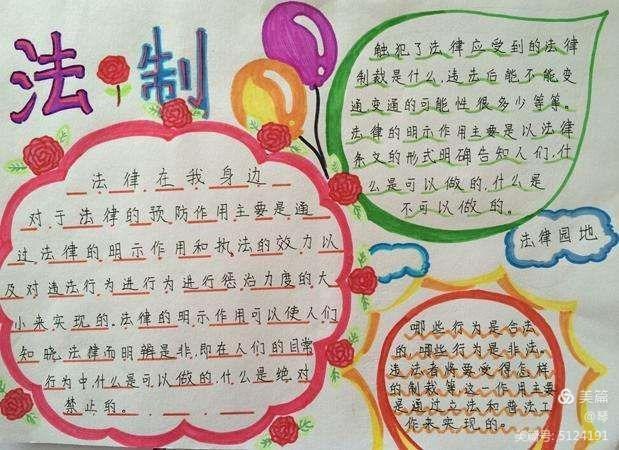 法制
法律在我身边
对于法律的预防作用主要是通
过法律的明示作用和执法的效力以
及对违法行为进行为进行惩治力度的大
小来实现的.法律的明示作用可以使人们
知晓法律而明辨是非,即在人们的日常
行为中,什么是可以做的.什么是绝对
禁止的。
触犯了法律应受到的法律
制裁是什么.违法后能不能变
通变通的可能性很多少等等。
法律的明示作用主要是以法律
条文的形式明确告知人们,什
么是可以做的.什么是
不可以做的。
法律园地
哪些行为是合法
的.哪些行为是非法。
违法者将要受得怎样
的制裁等.这一作用主要
是通过立法和普法工
作来实现的。
美篇
@琴
美篇号: 5124191